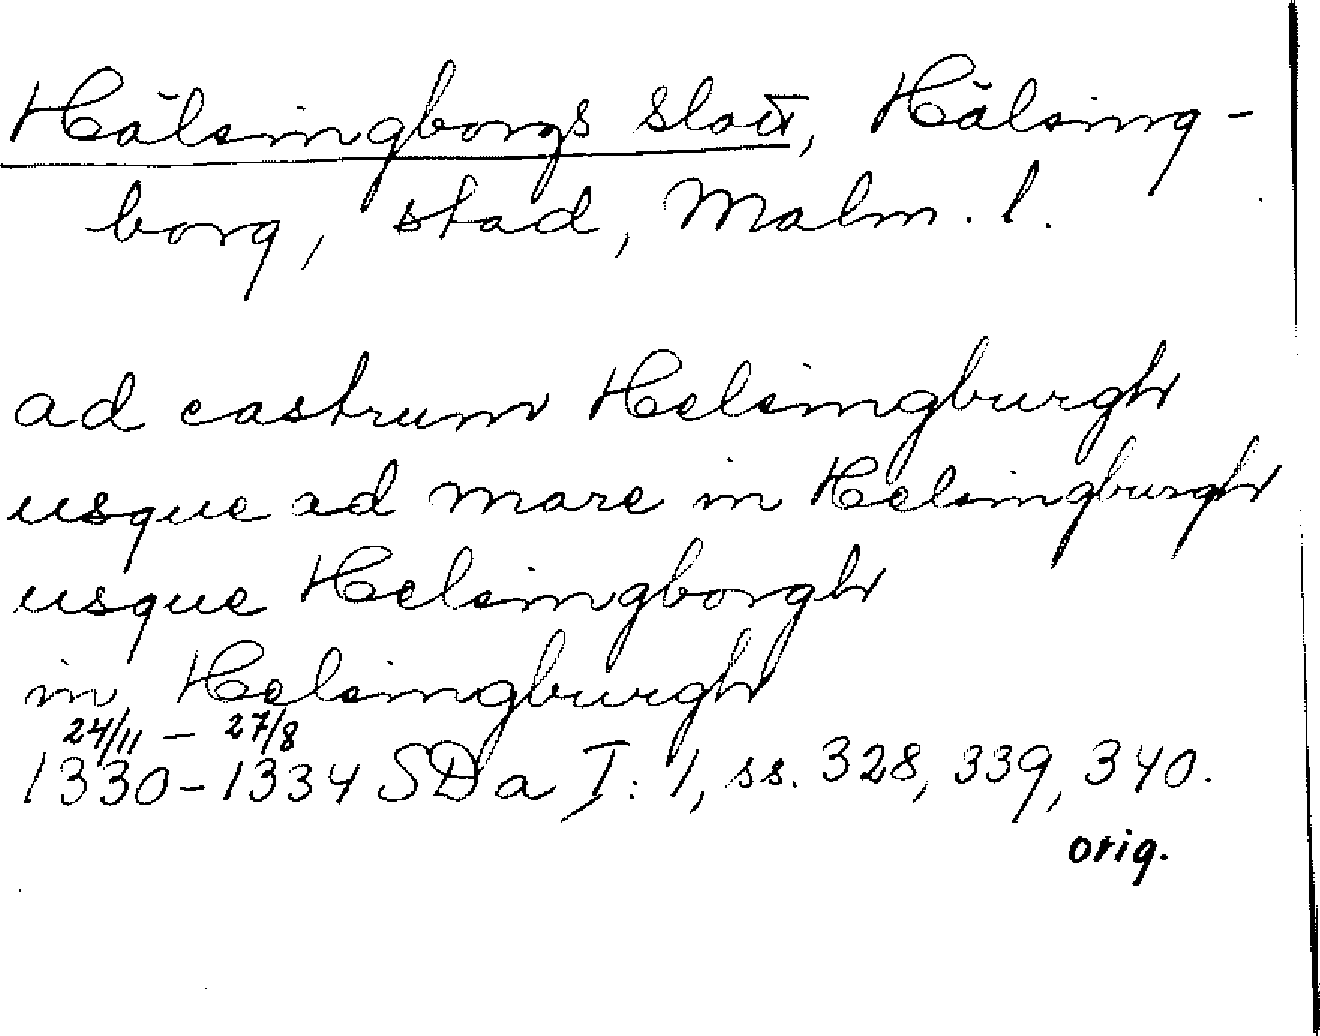 Hälsingborgs slott, Hälsing-
borg, stad, Malm. l.
ad castrum Helsingburgh
usque ad mare in Helsingburgh
usque Helsingborgh
in Helsingburgh
24/11 - 27/8
1330-1334 SDa I: 1, ss. 328, 339, 340.
orig.